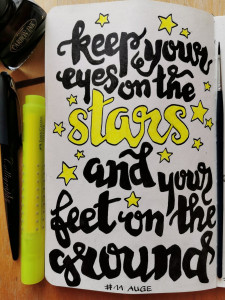 keep your
eyes on the
stars
and your
feet on the
ground
#11 AUGE